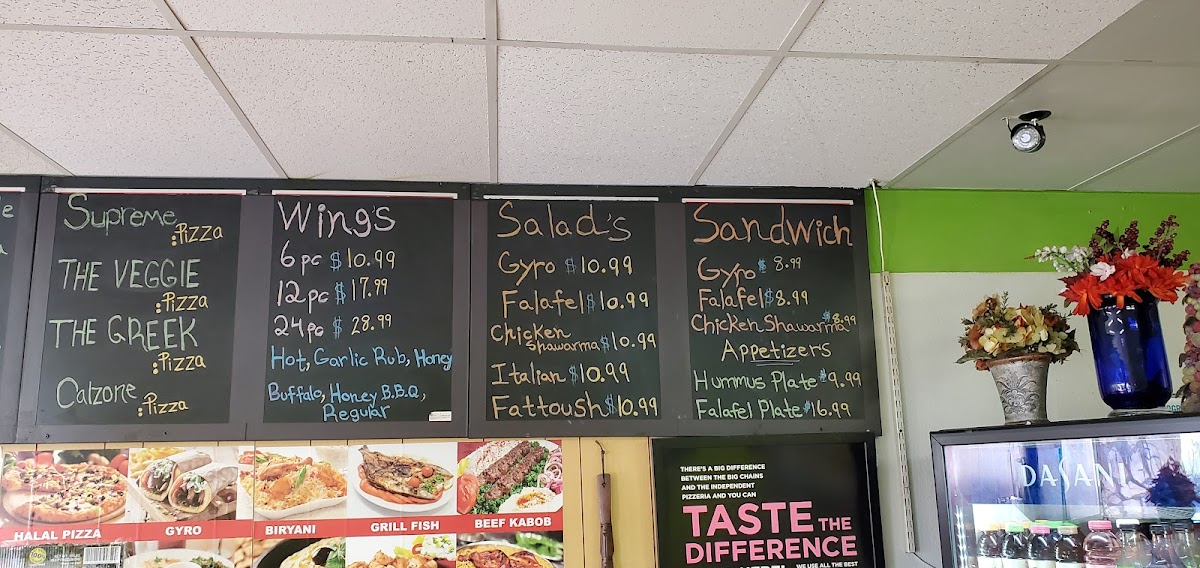 Supreme
:Pizza
THE VEGGIE
:Pizza
THE GREEK
:Pizza
Calzone
:Pizza
Wing's
6 pc $10.99
12 pc $17.99
24 pc $28.99
Hot, Garlic Rub, Honey
Buffalo, Honey B.B.Q,
Regular
Salad's
Gyro $10.99
Falafel $10.99
Chicken
Shawarma $10.99
Italian $10.99
Fattoush $10.99
Sandwich
Gyro $8.99
Falafel $8.99
Chicken Shawarma $8.99
Appetizers
Hummus Plate $9.99
Falafel Plate $16.99
HALAL PIZZA
GYRO
BIRYANI
GRILL FISH
BEEF KABOB
THERE'S A BIG DIFFERENCE
BETWEEN THE BIG CHAINS
AND THE INDEPENDENT
PIZZERIA AND YOU CAN
TASTE THE
DIFFERENCE
HERE!
WE USE ALL THE BEST
DASANI